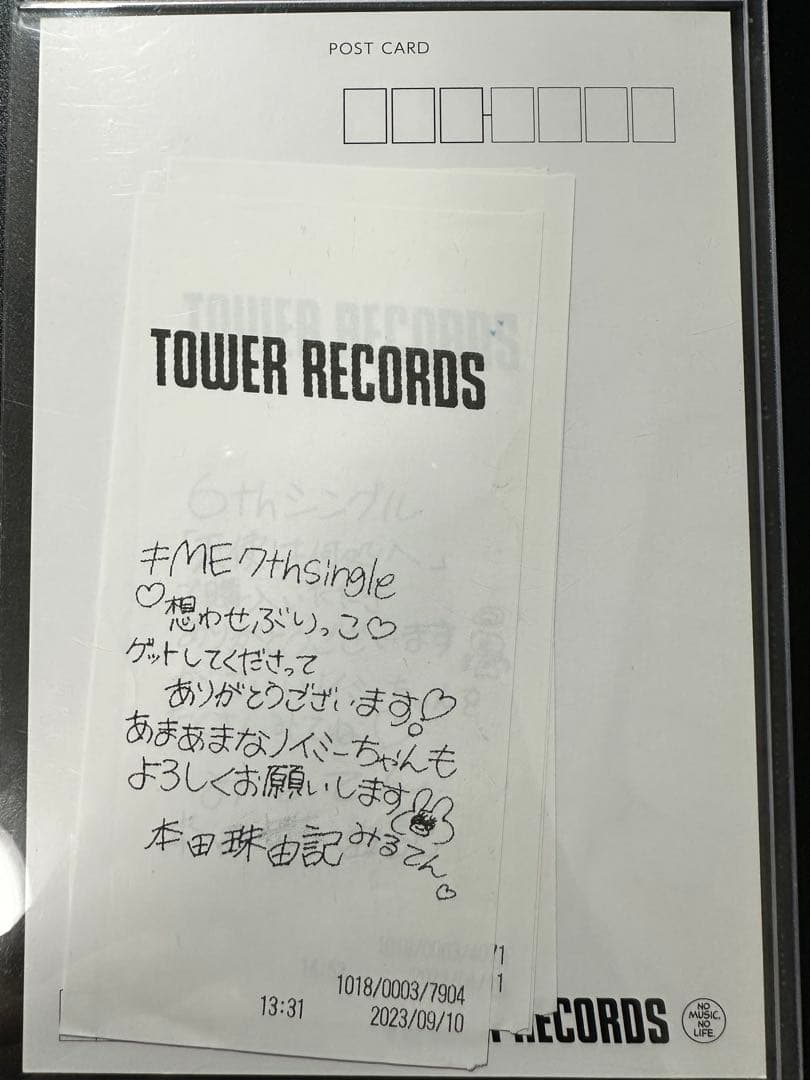 POST CARD
TOWER RECORDS
6thシングル
≠ME 7thsingle
♡想わせぶりっこ♡
ゲットしてくださって
ありがとうございます♡
あまあまなノイミーちゃんも
よろしくお願いします
本田珠由記 みるてん♡
1018/0003/7904
13:31 2023/09/10
RECORDS
NO MUSIC. NO LIFE.